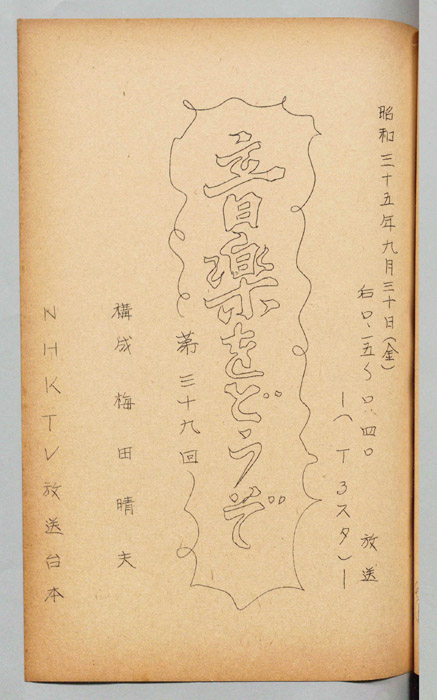 昭和三十五年九月三十日(金)
后〇、一五〜〇、四〇 放送
―(T3スタ)―
音楽をどうぞ
第三十九回
構成 梅田晴夫
NHKTV放送台本